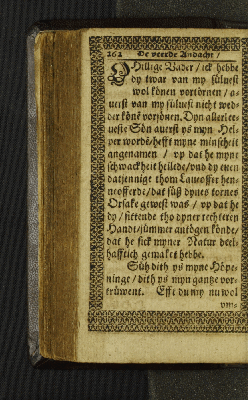 262 De veerde Andacht /
O Hillige Vader / ick hebbe
dy twar van my sülvest
wol können vortörnen / a-
uerst van my sülvest nicht wed-
der köne vorsönen. Dyn allerle-
ueste Sön auerst ys myn Hel-
per worde / hefft myne minscheit
angenamen / vp dat he myne
schwackheit heilede / vnd dy even
datjennige thom Lauoffer hen-
neofferde / dat süß dynes tornes
Orsake gewest was / vp dat he
dy / sittende tho dyner rechteren
Handt / jümmer antögen könde /
dat he sick myner Natur deel-
hafftich gemaket hebbe.
Süh dith ys myne Höpe-
ninge / dith ys myn gantze vor-
trüwent. Effe du my nu wol
vm=